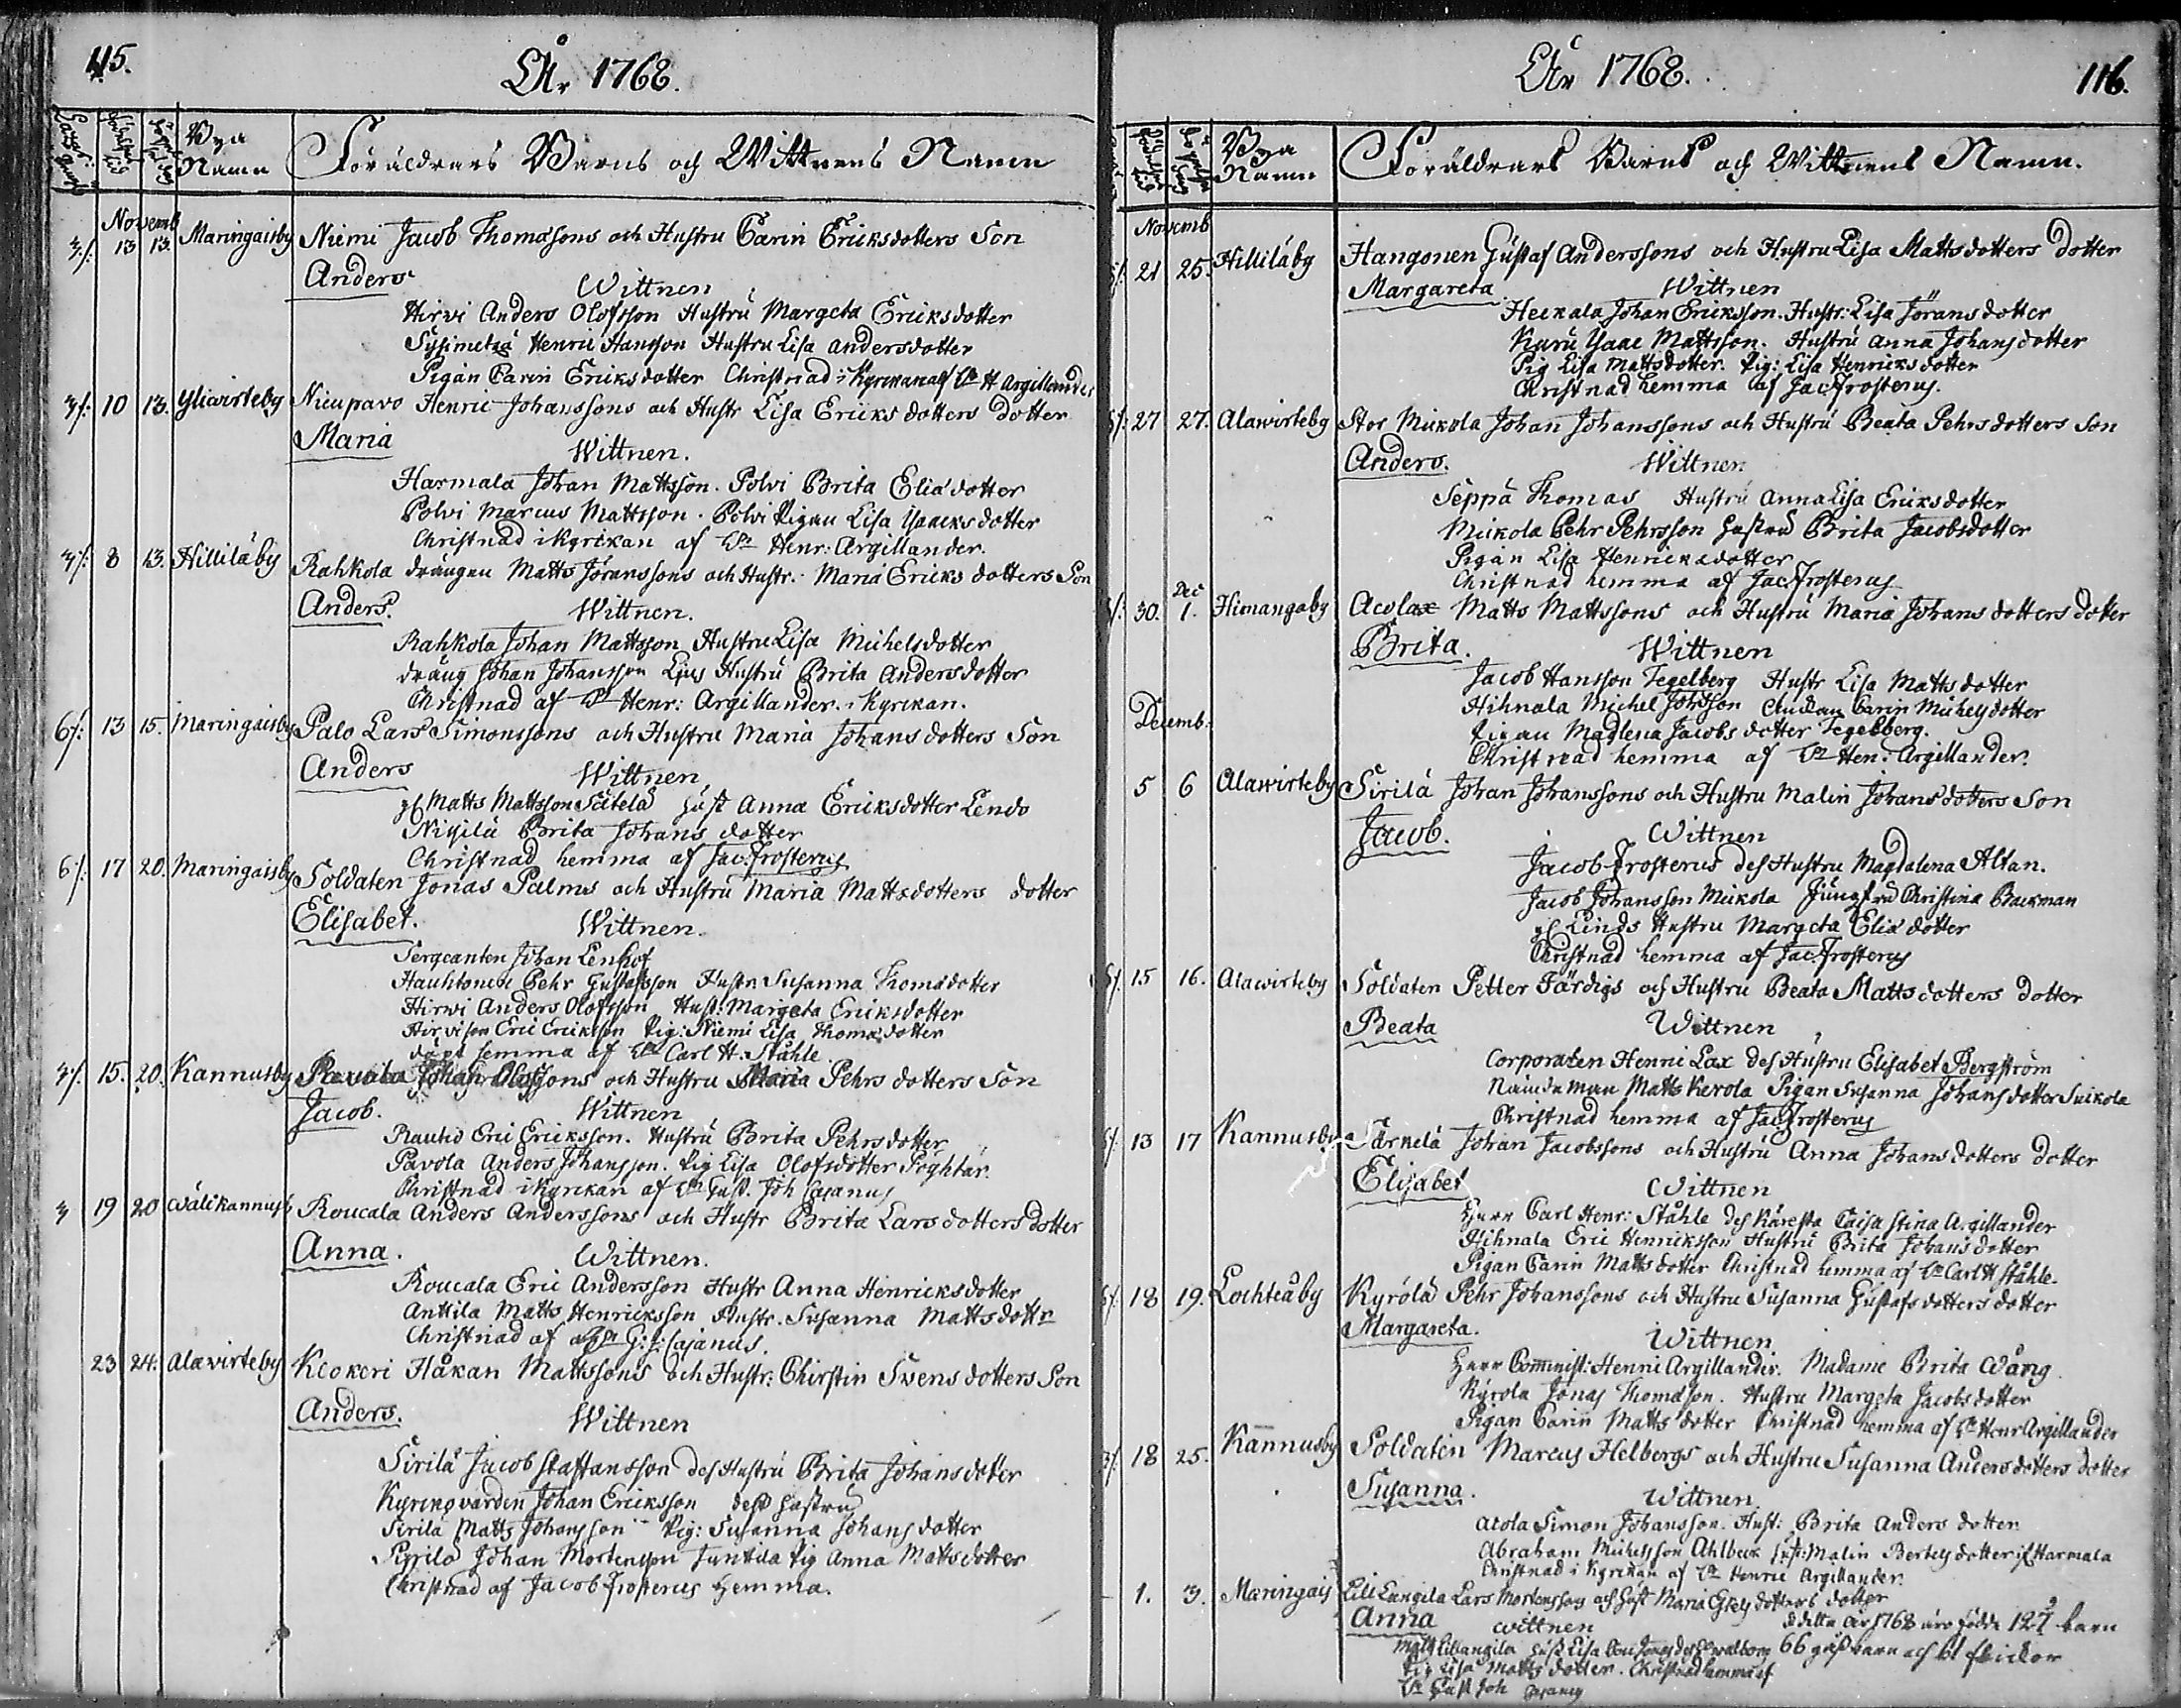 115.
År 1768.
Bya
Namn
Föräldrars Barns och Wittnens Namn
Novemb
3/: 13 13 Maringaisby Niemi Jacob Thomæsons och Hustru Carin Ericksdotters Son
Anders
Wittnen
Hirvi Anders Olofsson Hustru Margeta Ericksdotter
Henric Hansson Hustru Lisa andersdotter
Pigan Carin Ericksdotter Christnad i Kyrckan af H Argillander
3/: 10 13. Yliwirteby Henric Johanssons och Hustr Lisa Ericks dotters dotter
Maria
Wittnen.
Harmala Johan Mattsson. Polvi Brita Eliædotter
Polvi Marcus Mattsson. Polvi Pigan Lisa Ysaacksdotter
Christnad i Kyrckan af Henr: Argillander.
3/: 8 13. Hilliläby Rahkola drängen Matts Jöranssons och Hustr. Maria Ericks dotters Son
Anders.
Wittnen.
Rahkola Johan Mattsson Hustru Lisa Michelsdotter
dräng Johan Johansson Hustru Brita Andersdotter
Christnad af Henr: Argillander. i Kyrckan.
6/: 13 15. Maringaisby Palo Lars Simonssons och Hustru Maria Johans dotters Son
Anders
Wittnen
Matts Mattsson Hust Anna Ericksdotter
Brita Johans dotter
Christnad hemma af Jac: Frosterus
6/: 17 20. Maringaisby Soldaten Jonas Palms och Hustru Maria Mattsdotters dotter
Elisabet.
Wittnen.
Sergeanten Johan
Pehr Gustafsson Hustr. Susanna Thomædotter
Hirwi Anders Olofsson Hust: Margeta Ericksdotter
Eric Ericksson Pig: Niemi Lisa Thomædotter
döpt hemma af Carl H. Ståhle
3/. 15. 20. Kannusby och Hustru Maria Pehrs dotters Son
Jacob.
Wittnen
Rautio Eric Ericksson. Hustru Brita Pehrsdotter
Pavola Anders Johansson. Pig Lisa Olofsdotter
Christnad i Kyrckan af Gust. Joh Cajanus
3 19 20 Wälikannus Roucala Anders Anderssons och Hustr Brita Larsdotters dotter
Anna.
Wittnen.
Roucala Eric Andersson Hustr Anna Henricksdotter
Anttila Matts Henricksson Hustr. Susanna Mattsdottr
Christnad af G: J: Cajanus.
23 24. Alavirteby Håkan Mattssons och Hustr: Chirstin Svens dotters Son
Anders.
Wittnen
Sirilä Jacob Staffansson des Hustru Brita Johansdotter
Johan Ericksson des Hustru
Sirilä Matts Johansson Pig: Susanna Johansdotter
Johan Mortensson Pig Anna Mattsdotter
Christnad af Jacob Frosterus hemma.
År 1768.
116.
Bya
Namn
Föräldrars Barns och Wittnens Namn.
Novemb
21 25. Hilliläby Hangonen Gustaf Anderssons och Hustru Lisa Mattsdotters dotter
Margareta
Wittnen
Heikala Johan Ericksson. Hustr: Lisa Jöransdotter
Mattsson. Hustru Anna Johansdotter
Pig Lisa Mattsdotter. Pig: Lisa Henricksdotter
Christnad hemma af Jac: Frosterus.
27 27. Alawirteby Stor Mickola Johan Johanssons och Hustru Beata Pehrsdotters Son
Anders.
Wittnen
Seppä Thomas Hustru Anna Lisa Ericksdotter
Mickola Pehr Pehrsson Hustru Brita Jacobsdotter
Pigan Lisa Henricksdotter
Christnad hemma af Jac: Frosterus
Dec
30. 1. Himangoby Matts Mattssons och Hustru Maria Johans dotters dotter
Brita.
Wittnen
Jacob Hansson Tegelberg Hustr Lisa Matts dotter
Hihnala Michel Johsson Enckan Carin Michelsdotter
Pigan Madlena Jacobs dotter Tegelberg.
Christnad hemma af Hen: Argillander.
Decemb:
5 6 Alawirteby Sirilä Johan Johanssons och Hustru Malin Johansdotters Son
Jacob.
Wittnen
Jacob Frosterus des Hustru Magdalena Altan.
Jacob Johansson Mickola Jungfru Christina Backman
Linds Hustru Margeta Eliæ dotter
Christnad hemma af Jac: Frosterus
15 16. Alawirteby Soldaten Petter Färdigs och Hustru Beata Mattsdotters dotter
Beata
Wittnen
Corporalen Henric Lax des Hustru Elisabet Bergström
Nämndeman Matts Kerola Pigan Susanna Johansdotter
Christnad hemma af Jac: Frosterus
13 17 Kannusby Särkelä Johan Jacobssons och Hustru Anna Johans dotters dotter
Elisabet
Wittnen
Herr Carl Henr: Ståhle des Käresta Caisa Stina Argillander
Hihnala Eric Henricksson Hustru Brita Johansdotter
Pigan Carin Mattsdotter Christnad hemma af Carl H Ståhle.
18 19. Lochteåby Kyrölä Pehr Johanssons och Hustru Susanna Gustafsdotters dotter
Margareta.
Wittnen
Herr Comminist: Henric Argillander. Madame Brita Wång
Kyrola Jonas Thomæson. Hustru Margeta Jacobsdotter
Pigan Carin Mattsdotter Christnad hemma af Henr Argillander
18 25. Kannusby Soldaten Marcus Helbergs och Hustru Susanna Andersdotters dotter
Susanna.
Wittnen.
Simon Johansson. Hust: Brita Andersdotter
Abraham Michelsson Ahlbeck Hust: Malin Bertelsdotter Harmala
Christnad i Kyrckan af Henric Argillander.
1. 3. Maringais Lill Langila Lars Mortenssons och Hust Maria dotters dotter
Anna
Wittnen
detta år 1768 äro födde 127 barn
66 gåssbarn och 61 flickor
Matts Lillangila Hust Lisa
Pig Lisa Mattsdotter. Christnad hemma af
Gust Joh Cajanus